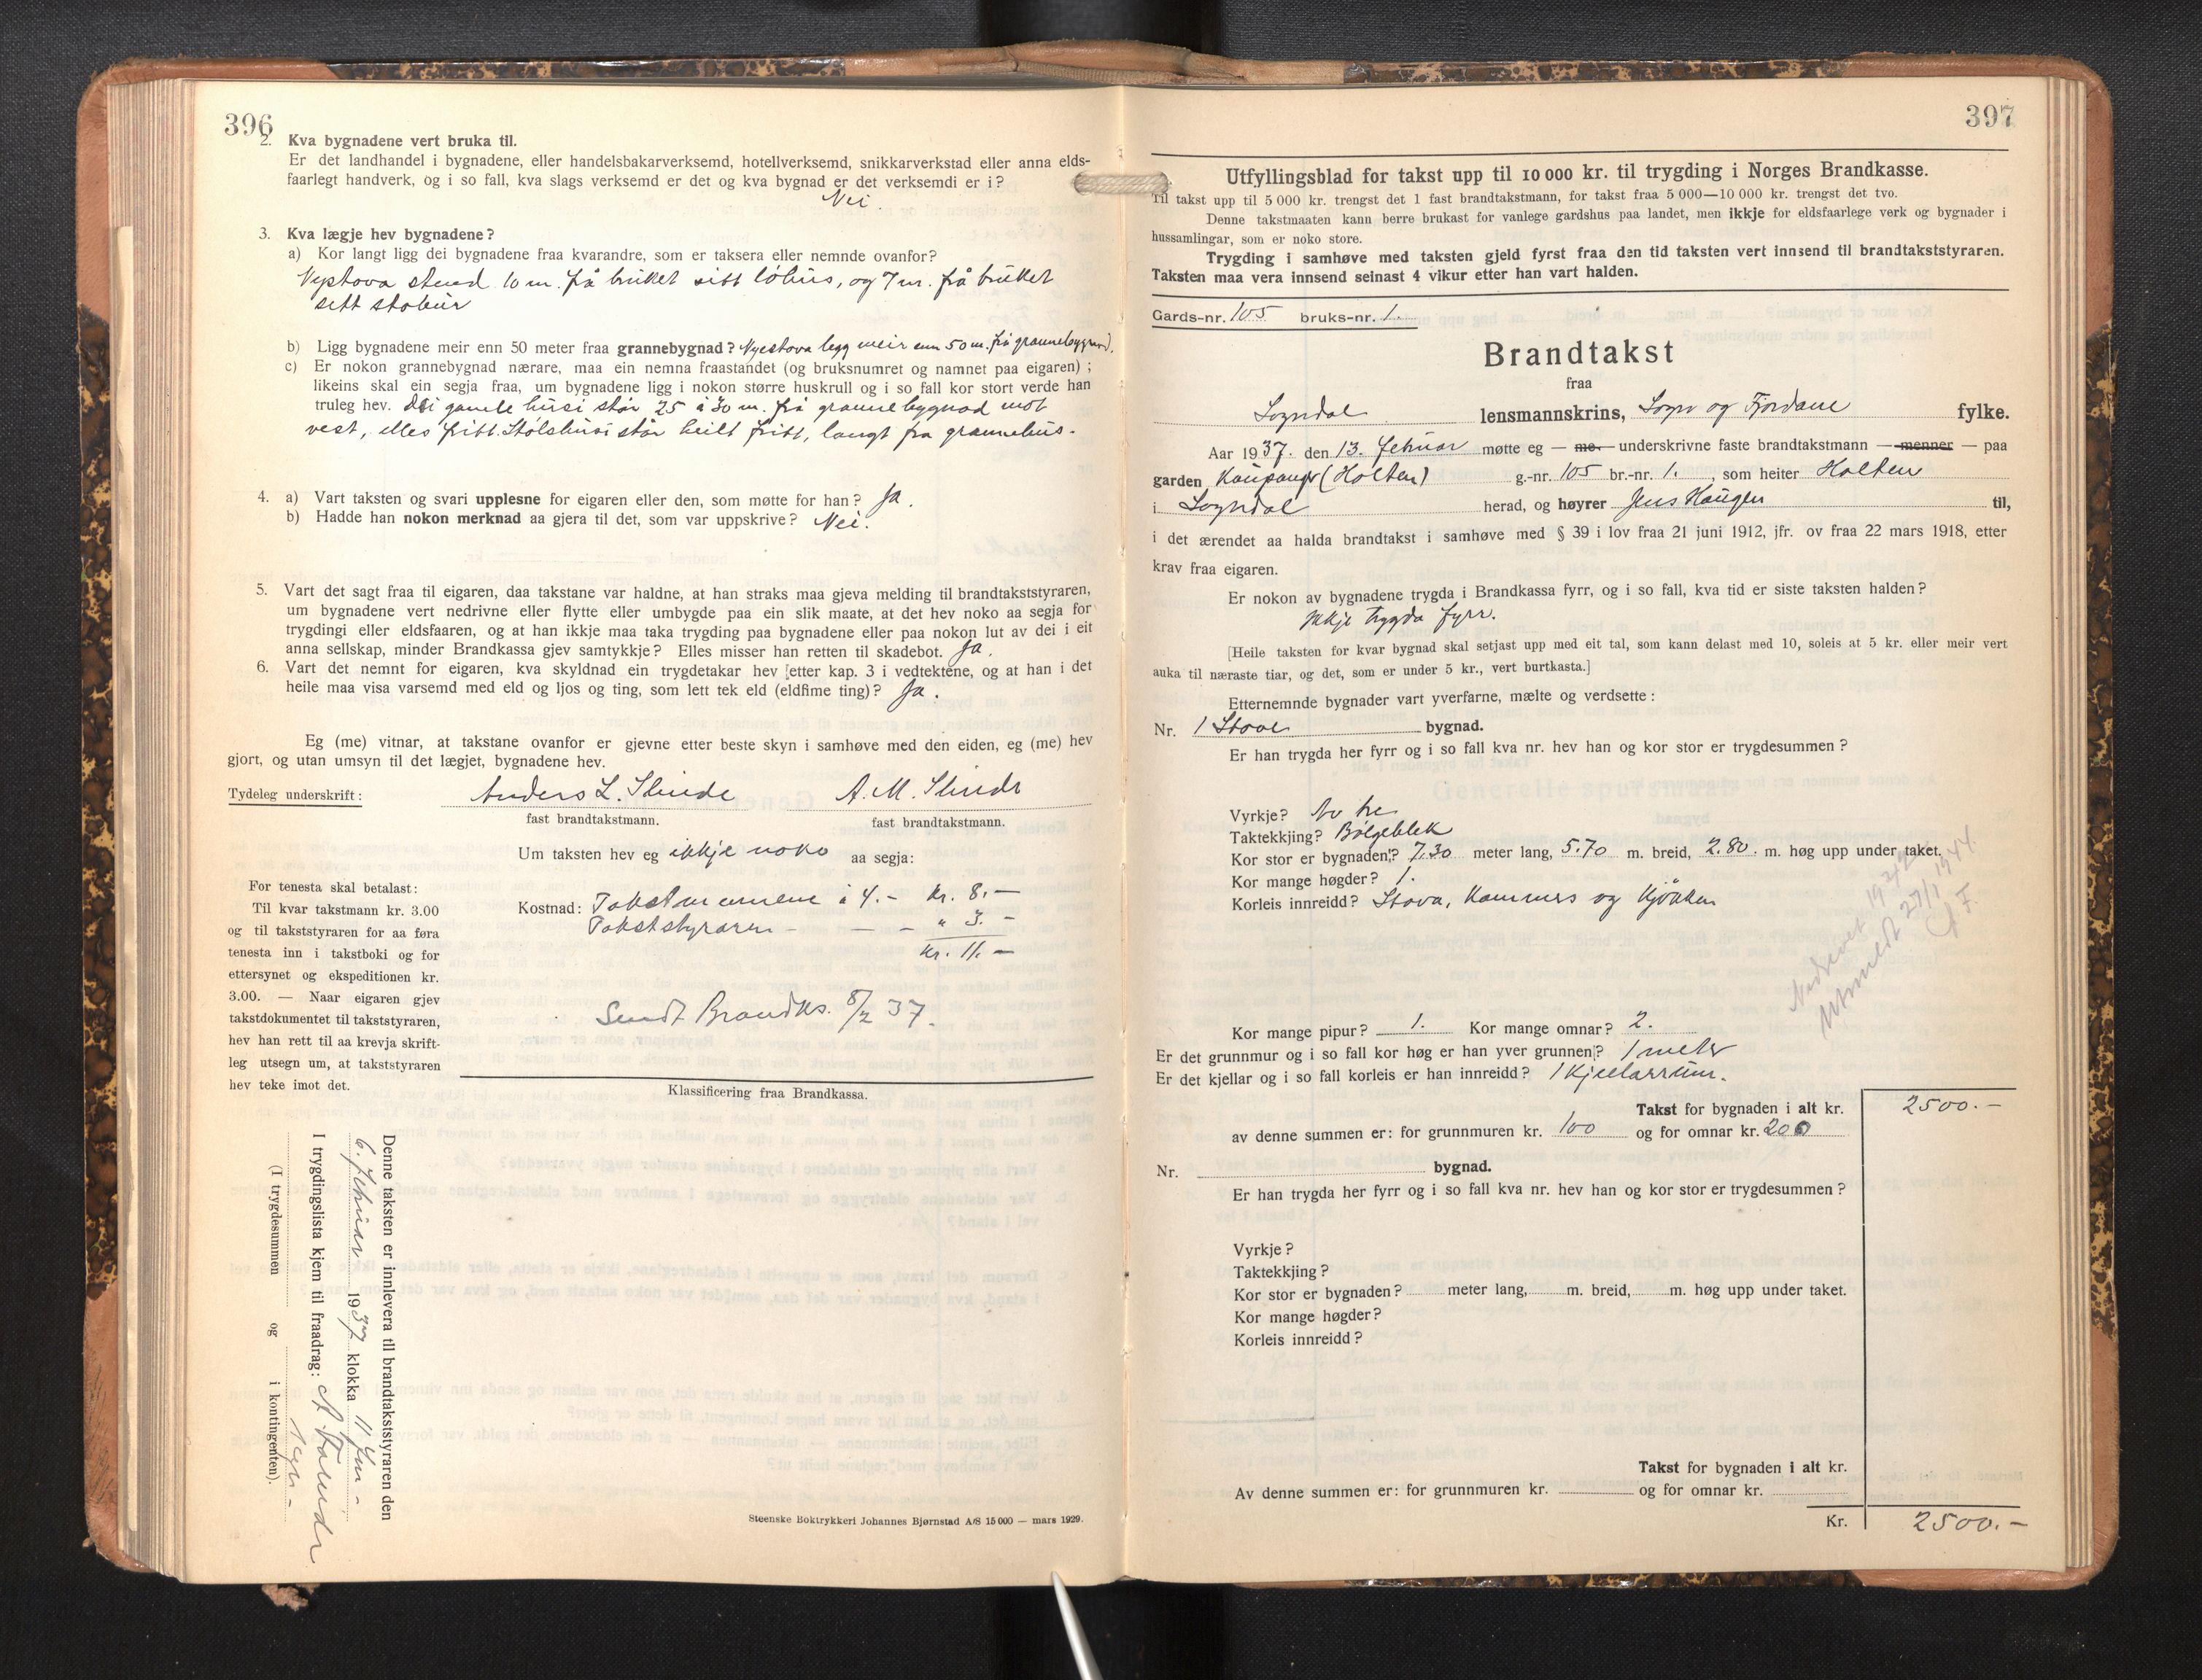 396
2. Kva bygnadene vert bruka til.
Er det landhandel i bygnadene, eller handelsbakarverksemd, hotellverksemd, snikkarverkstad eller anna elds-
faarlegt handverk, og i so fall, kva slags verksemd er det og kva bygnad er det verksemdi er i?
Nei.
3. Kva lægje hev bygnadene?
a) Kor langt ligg dei bygnadene fraa kvarandre, som er taksera eller nemnde ovanfor?
Nystova stend 10 m. frå bruket sitt löhus, og 7 m. frå bruket
sitt stabur
b) Ligg bygnadene meir enn 50 meter fraa grannebygnad? Nyestova legg meir enn 50 m. frå grannebygnad.
c) Er nokon grannebygnad nærare, maa ein nemna fraastandet (og bruksnumret og namnet paa eigaren);
likeins skal ein segja fraa, um bygnadene ligg i nokon større huskrull og i so fall kor stort verde han
truleg hev. Dei gamle husi står 25 à 30 m. frå grannebygnad mot
vest, elles fritt. Stølshusi står heilt fritt, langt fra grannehus.
4. a) Vart taksten og svari upplesne for eigaren eller den, som møtte for han? Ja.
b) Hadde han nokon merknad aa gjera til det, som var uppskrive? Nei.
5. Vart det sagt fraa til eigaren, daa takstane var haldne, at han straks maa gjeva melding til brandtakststyraren,
um bygnadene vert nedrivne eller flytte eller umbygde paa ein slik maate, at det hev noko aa segja for
trygdingi eller eldsfaaren, og at han ikkje maa taka trygding paa bygnadene eller paa nokon lut av dei i eit
anna sellskap, minder Brandkassa gjev samtykkje? Elles misser han retten til skadebot. Ja.
6. Vart det nemnt for eigaren, kva skyldnad ein trygdetakar hev [etter kap. 3 i vedtektene, og at han i det
heile maa visa varsemd med eld og ljos og ting, som lett tek eld (eldfime ting)? Ja.
Eg (me) vitnar, at takstane ovanfor er gjevne etter beste skyn i samhøve med den eiden, eg (me) hev
gjort, og utan umsyn til det lægjet, bygnadene hev.
Tydeleg underskrift: Anders L. Slinde A. M. Slinde
fast brandtakstmann. fast brandtakstmann.
Um taksten hev eg ikkje noko aa segja:
For tenesta skal betalast:
Til kvar takstmann kr. 3.00
og til takststyraren for aa føra
tenesta inn i takstboki og for
ettersynet og ekspeditionen kr.
3.00. — Naar eigaren gjev
takstdokumentet til takststyraren,
hev han rett til aa krevja skrift-
leg utsegn um, at takststyraren
hev teke imot det.
Kostnad: Takstmennene à 4.- kr. 8.—
Takststyraren - — — " 3.—
kr. 11.—
Sendt Brandks. 8/2 37.
Klassificering fraa Brandkassa.
Denne taksten er innlevera til brandtakststyraren den
6. februar 1937 klokka 11
I trygdingslista kjem til fraadrag:
(I trygdesummen og i kontingenten).
Steenske Boktrykkeri Johannes Bjørnstad A/S 15 000 — mars 1929.
397
Utfyllingsblad for takst upp til 10 000 kr. til trygding i Norges Brandkasse.
Til takst upp til 5 000 kr. trengst det 1 fast brandtakstmann, for takst fraa 5 000—10 000 kr. trengst det tvo.
Denne takstmaaten kann berre brukast for vanlege gardshus paa landet, men ikkje for eldsfaarlege verk og bygnader i
hussamlingar, som er noko store.
Trygding i samhøve med taksten gjeld fyrst fraa den tid taksten vert innsend til brandtakststyraren.
Taksten maa vera innsend seinast 4 vikur etter han vart halden.
Gards-nr. 105 bruks-nr. 1.
Brandtakst
fraa
Sogndal lensmannskrins, Sogn og Fjordane fylke.
Aar 1937. den 13. februar møtte eg — me — underskrivne faste brandtakstmann — menner — paa
garden Kaupanger (Holten) g.-nr. 105 br.-nr. 1. , som heiter Holten
i Sogndal herad, og høyrer Jens Haugen til,
i det ærendet aa halda brandtakst i samhøve med § 39 i lov fraa 21 juni 1912, jfr. ov fraa 22 mars 1918, etter
krav fraa eigaren.
Er nokon av bygnadene trygda i Brandkassa fyrr, og i so fall, kva tid er siste taksten halden?
Ikkje trygda fyrr.
[Heile taksten for kvar bygnad skal setjast upp med eit tal, som kann delast med 10, soleis at 5 kr. eller meir vert
auka til næraste tiar, og det, som er under 5 kr., vert burtkasta.]
Etternemnde bygnader vart yverfarne, mælte og verdsette:
Nr. 1 Stove bygnad.
Er han trygda her fyrr og i so fall kva nr. hev han og kor stor er trygdesummen?
Vyrkje? Av tre
Taktekkjing? Bölgeblek
Kor stor er bygnaden? 7.30 meter lang, 5.70 m. breid, 2.80. m. høg upp under taket.
Kor mange høgder? 1.
Korleis innreidd? Stova, Kammers og Kjöken
Nedrevet 1942
Utmeldt 27/1 1944.
Kor mange pipur? 1. Kor mange omnar? 2.
Er det grunnmur og i so fall kor høg er han yver grunnen? 1 meter
Er det kjellar og i so fall korleis er han innreidd? 1 Kjellarrum.
Takst for bygnaden i alt kr. 2500.—
av denne summen er: for grunnmuren kr. 100 og for omnar kr. 200
Nr. bygnad.
Er han trygda her fyrr og i so fall kva nr. hev han og kor stor er trygdesummen?
Vyrkje?
Taktekkjing?
Kor stor er bygnaden? meter lang, m. breid, m. høg upp under taket.
Kor mange høgder?
Korleis innreidd?
Takst for bygnaden i alt kr.
Av denne summen er: for grunnmuren kr. og for omnar kr.
Kr. 2500.—